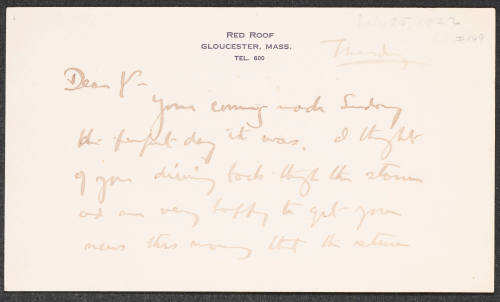 RED ROOF
GLOUCESTER, MASS.
TEL. 600
#149
Thursday
Dear Y—
Your coming made Sunday
the perfect day it was. I thought
of your driving back through the storm
and am very happy to get your
news this morning that the